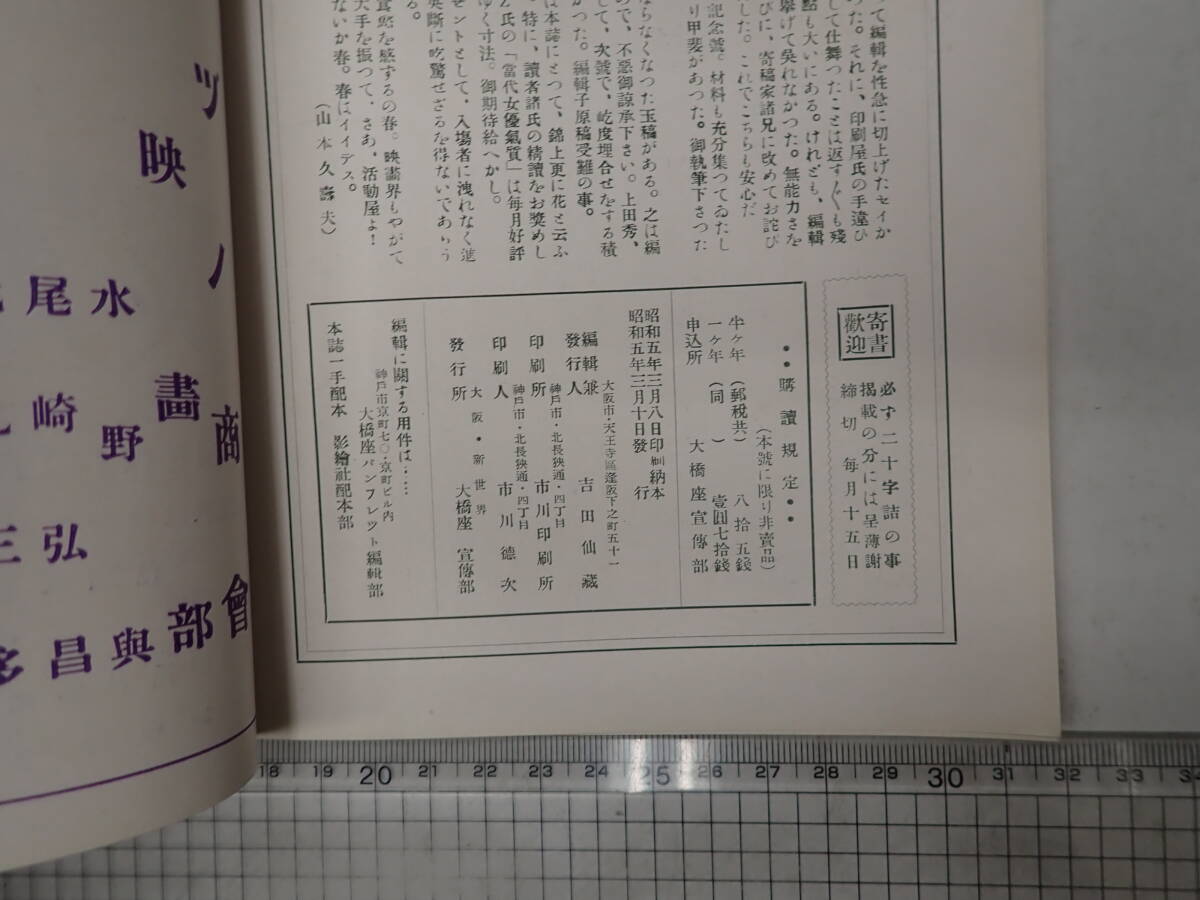 って編輯を性急に切上げたセイか
った。それに、印刷屋氏の手違ひ
して仕舞つたことは返す〲も殘
點も大いにある。けれども、編輯
擧げて吳れなかつた。無能力さを
びに、寄稿家諸兄に改めてお詫び
した。これでこちらも安心だ
記念號。材料も充分集つてゐたし
り甲斐があつた。御執筆下さつた
ならなくなつた玉稿がある。之は編
ので、不惡御諒承下さい。上田秀、
して、次號で、屹度埋合せをする積
かつた。編輯子原稿受難の事。
は本誌にとつて、錦上更に花と云ふ
。特に、讀者諸氏の精讀をお奬めし
ム氏の「當代女優氣質」は每月好評
ゆく寸法。御期待給へかし。
ゼントとして、入場者に洩れなく進
英斷に吃驚せざるを得ないであらう
る。
食慾を感ずるの春。映畫界もやがて
大手を振つて、さあ、活動屋よ！
ないか春。春はイイデス。
（山本久壽夫）
寄書歡迎
必ず二十字詰の事
揭載の分には呈薄謝
締切 每月十五日
●●購讀規定●●
（本號に限り非賣品）
半ヶ年（郵稅共）八拾五錢
一ヶ年（同　）壹圓七拾錢
申込所 大橋座宣傳部
昭和五年三月八日印刷納本
昭和五年三月十日發行
大阪市・天王寺區逢阪下之町五十一
編輯兼發行人 吉田仙藏
神戶市・北長狹通・四丁目
印刷所 市川印刷所
神戶市・北長狹通・四丁目
印刷人 市川德次
大阪・新世界
發行所 大橋座 宣傳部
編輯に關する用件は‥‥
神戶市京町七〇・京町ビル內
大橋座パンフレツト編輯部
本誌一手配本 影繪社配本部
ツノ商會
映畫部
水野
與
尾崎
昌
弘
三
18 19 20 21 22 23 24 25 26 27 28 29 30 31 32 33 34